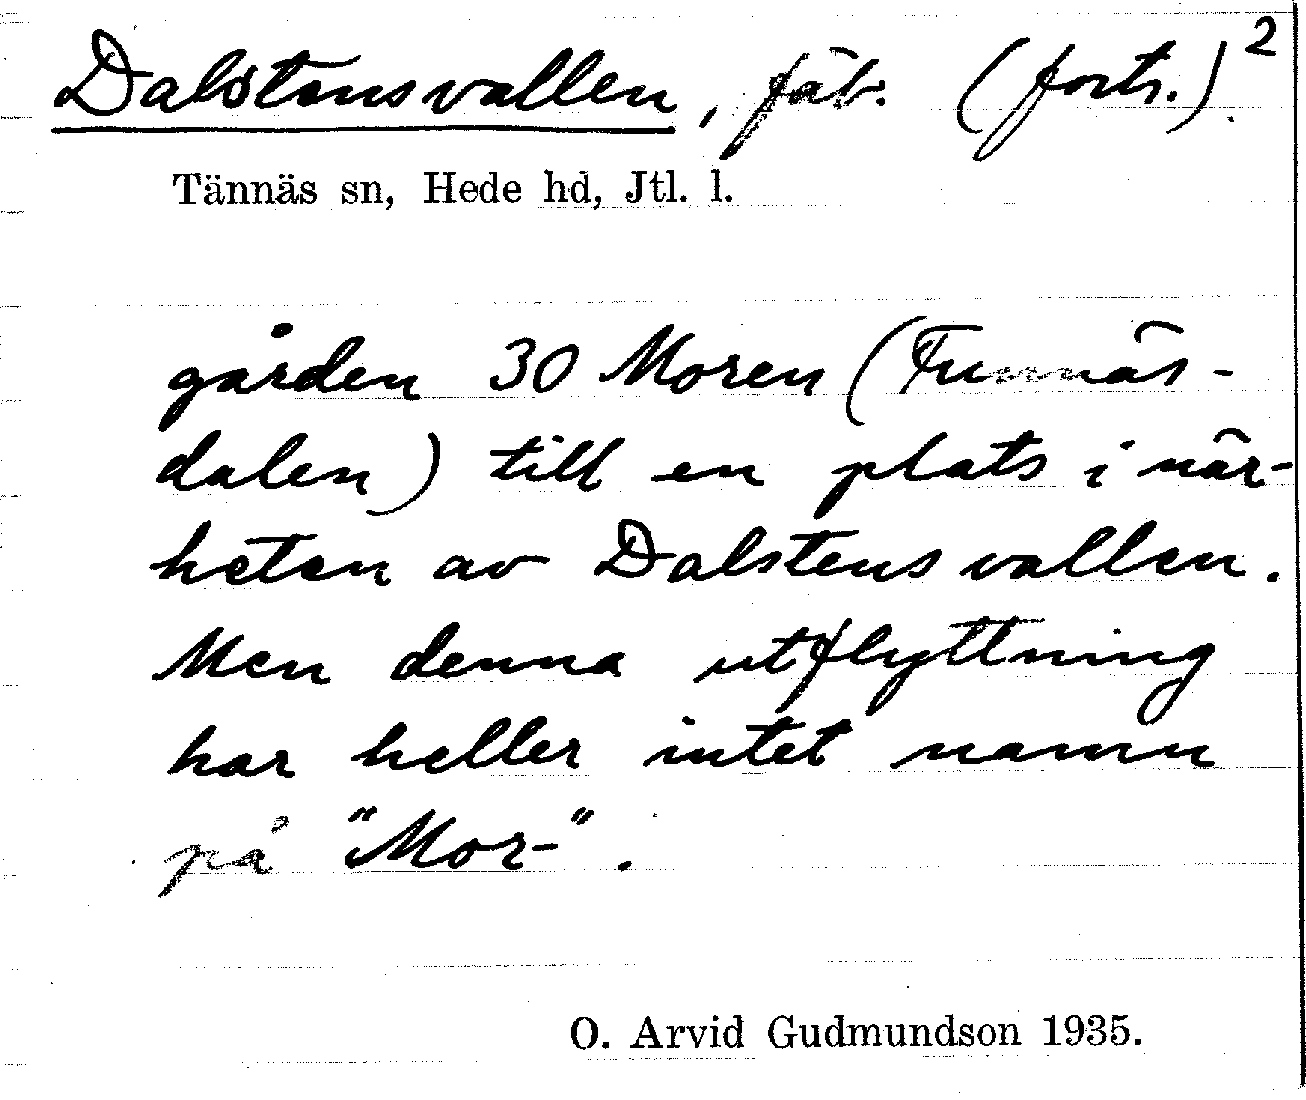 Dalstensvallen, fäb. (forts.) 2
Tännäs sn, Hede hd, Jtl. l.
gården 30 Moren (Funnäs-
dalen) till en plats i när-
heten av Dalstensvallen.
Men denna utflyttning
har heller intet namn
på "Mor-".
O. Arvid Gudmundson 1935.